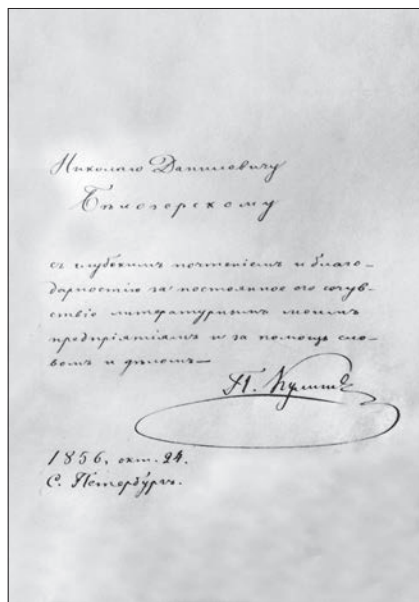 Николаю Даниловичу
Бѣлозерскому
съ глубокимъ почтеніемъ и благо-
дарностію за постоянное его сочув-
ствіе литературнымъ моимъ
предпріятіямъ и за помощь сло-
вомъ и дѣломъ—
П. Кулишъ
1856, окт. 24.
С. Петербургъ.